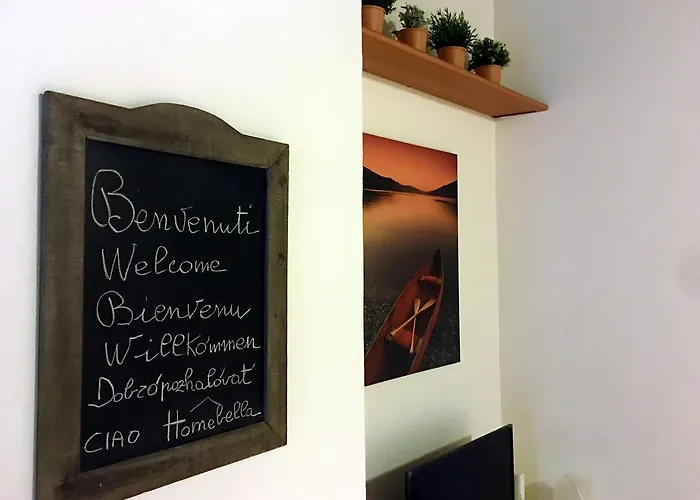 Benvenuti
Welcome
Bienvenu
Willkómmen
Dobrópozhalóvat
CIAO Homebella